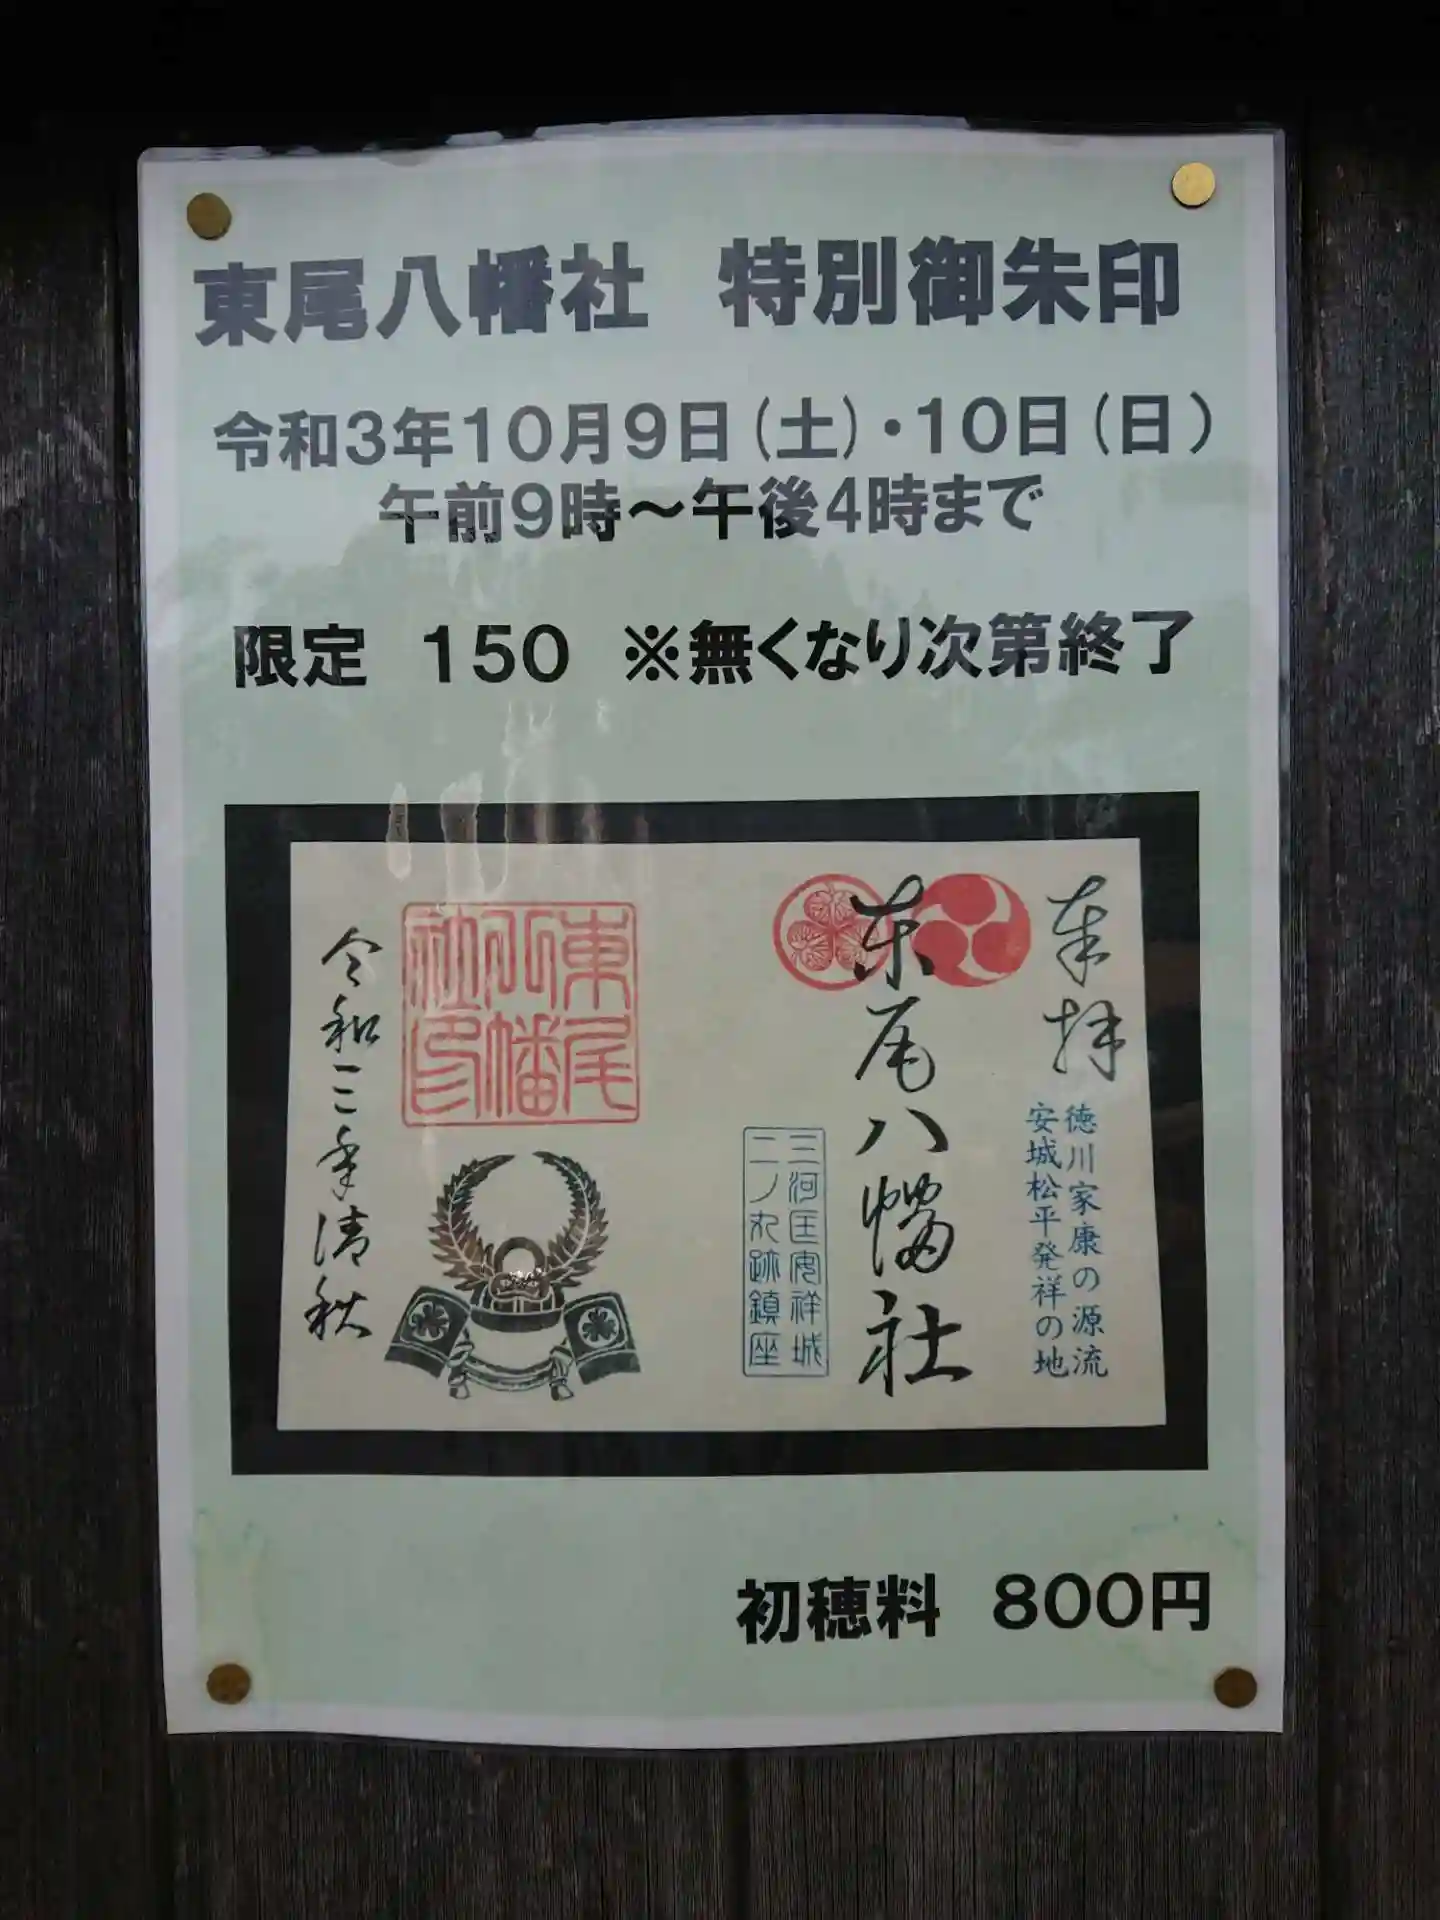 東尾八幡社　特別御朱印
令和3年10月9日(土)・10日(日)
午前9時～午後4時まで
限定　150　※無くなり次第終了
奉拝
徳川家康の源流
安城松平発祥の地
東尾八幡社
三河国安祥城
二ノ丸跡鎮座
東尾
八幡
社印
令和三年清秋
初穂料　800円